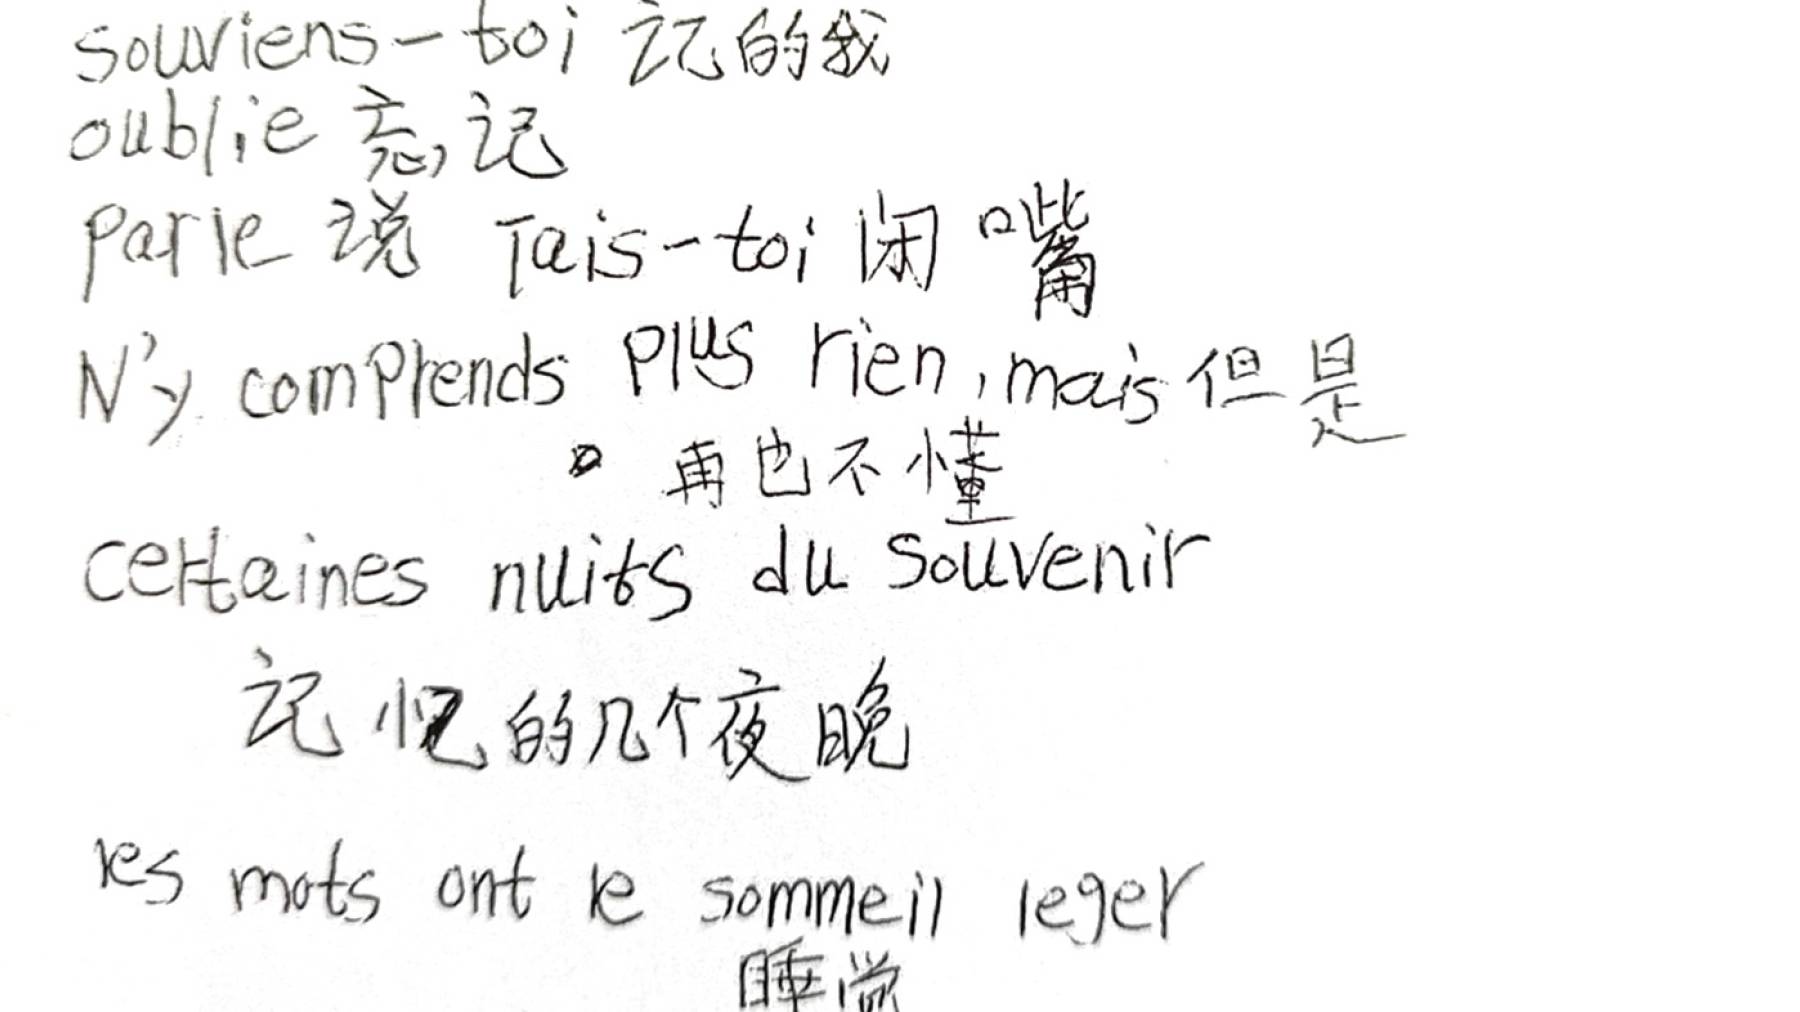 souviens-toi 记的我
oublie 忘记
parle 说 Tais-toi 闭嘴
N'y comprends plus rien, mais 但是
再也不懂
certaines nuits du souvenir
记忆的几个夜晚
les mots ont le sommeil leger
睡觉